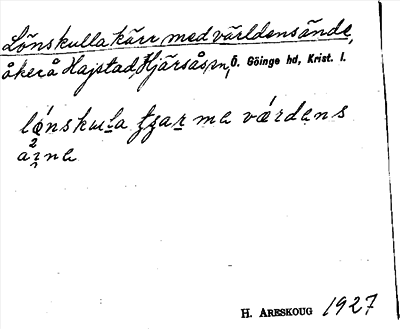 Lönskulla kärr med världensände,
åker å Hajstad, Hjärsås sn, Ö. Göinge hd, Krist. l.
lǿnskula tʒar me várdens
ai̯na
2
H. ARESKOUG 1927